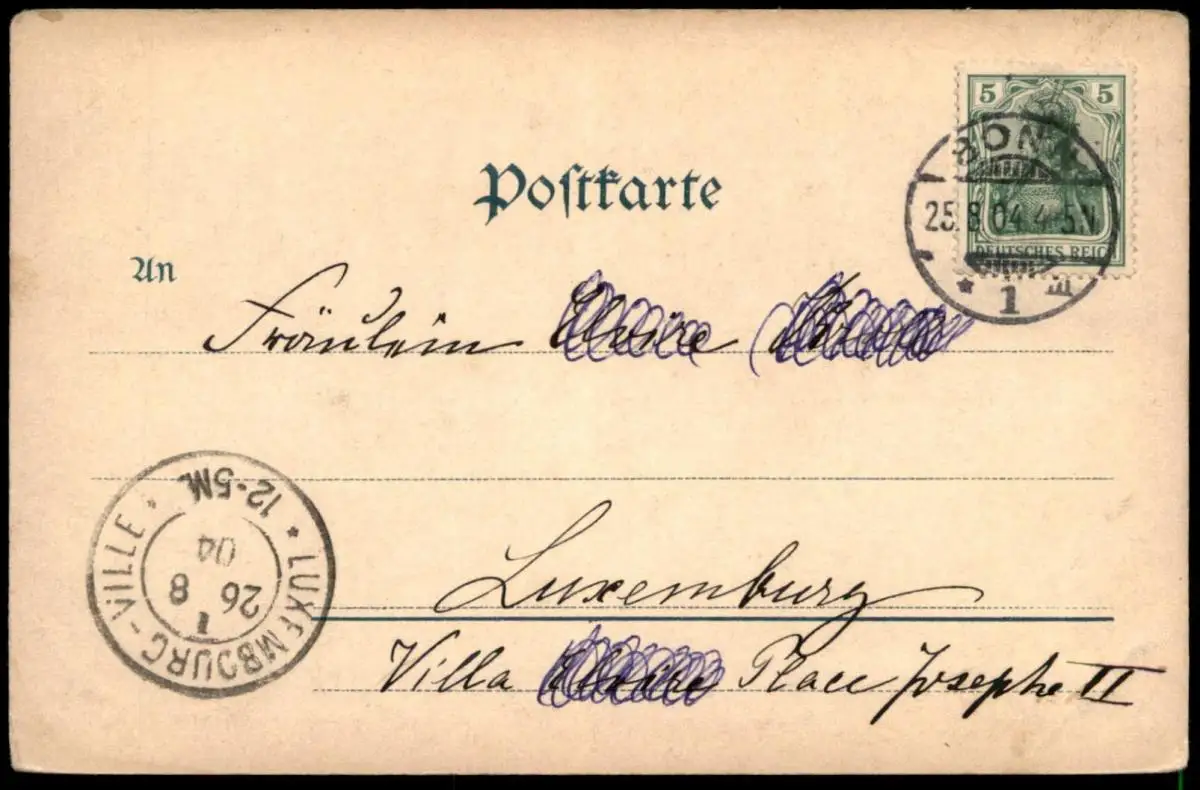 5 5
DEUTSCHES REICH
BONN
25.8.04.4-5N
* 1 E
Postkarte
An
Fräulein Elvire
LUXEMBOURG-VILLE
12-5M
26 8
04
1
Luxemburg
Villa Elvire Place Josephe II